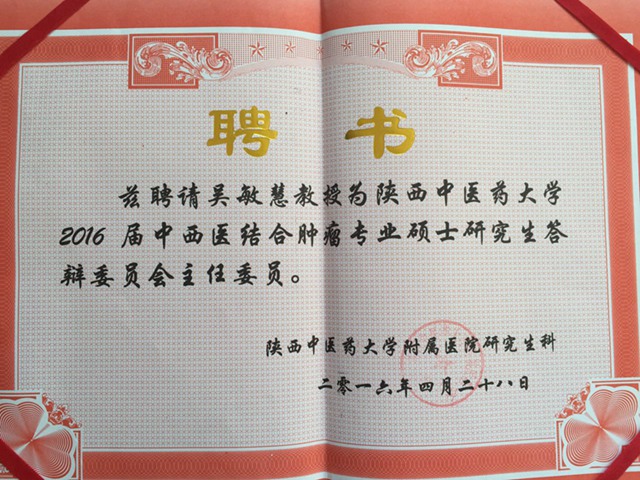 聘书
兹聘请吴敏慧教授为陕西中医药大学
2016届中西医结合肿瘤专业硕士研究生答
辩委员会主任委员。
陕西中医药大学附属医院研究生科
二零一六年四月二十八日